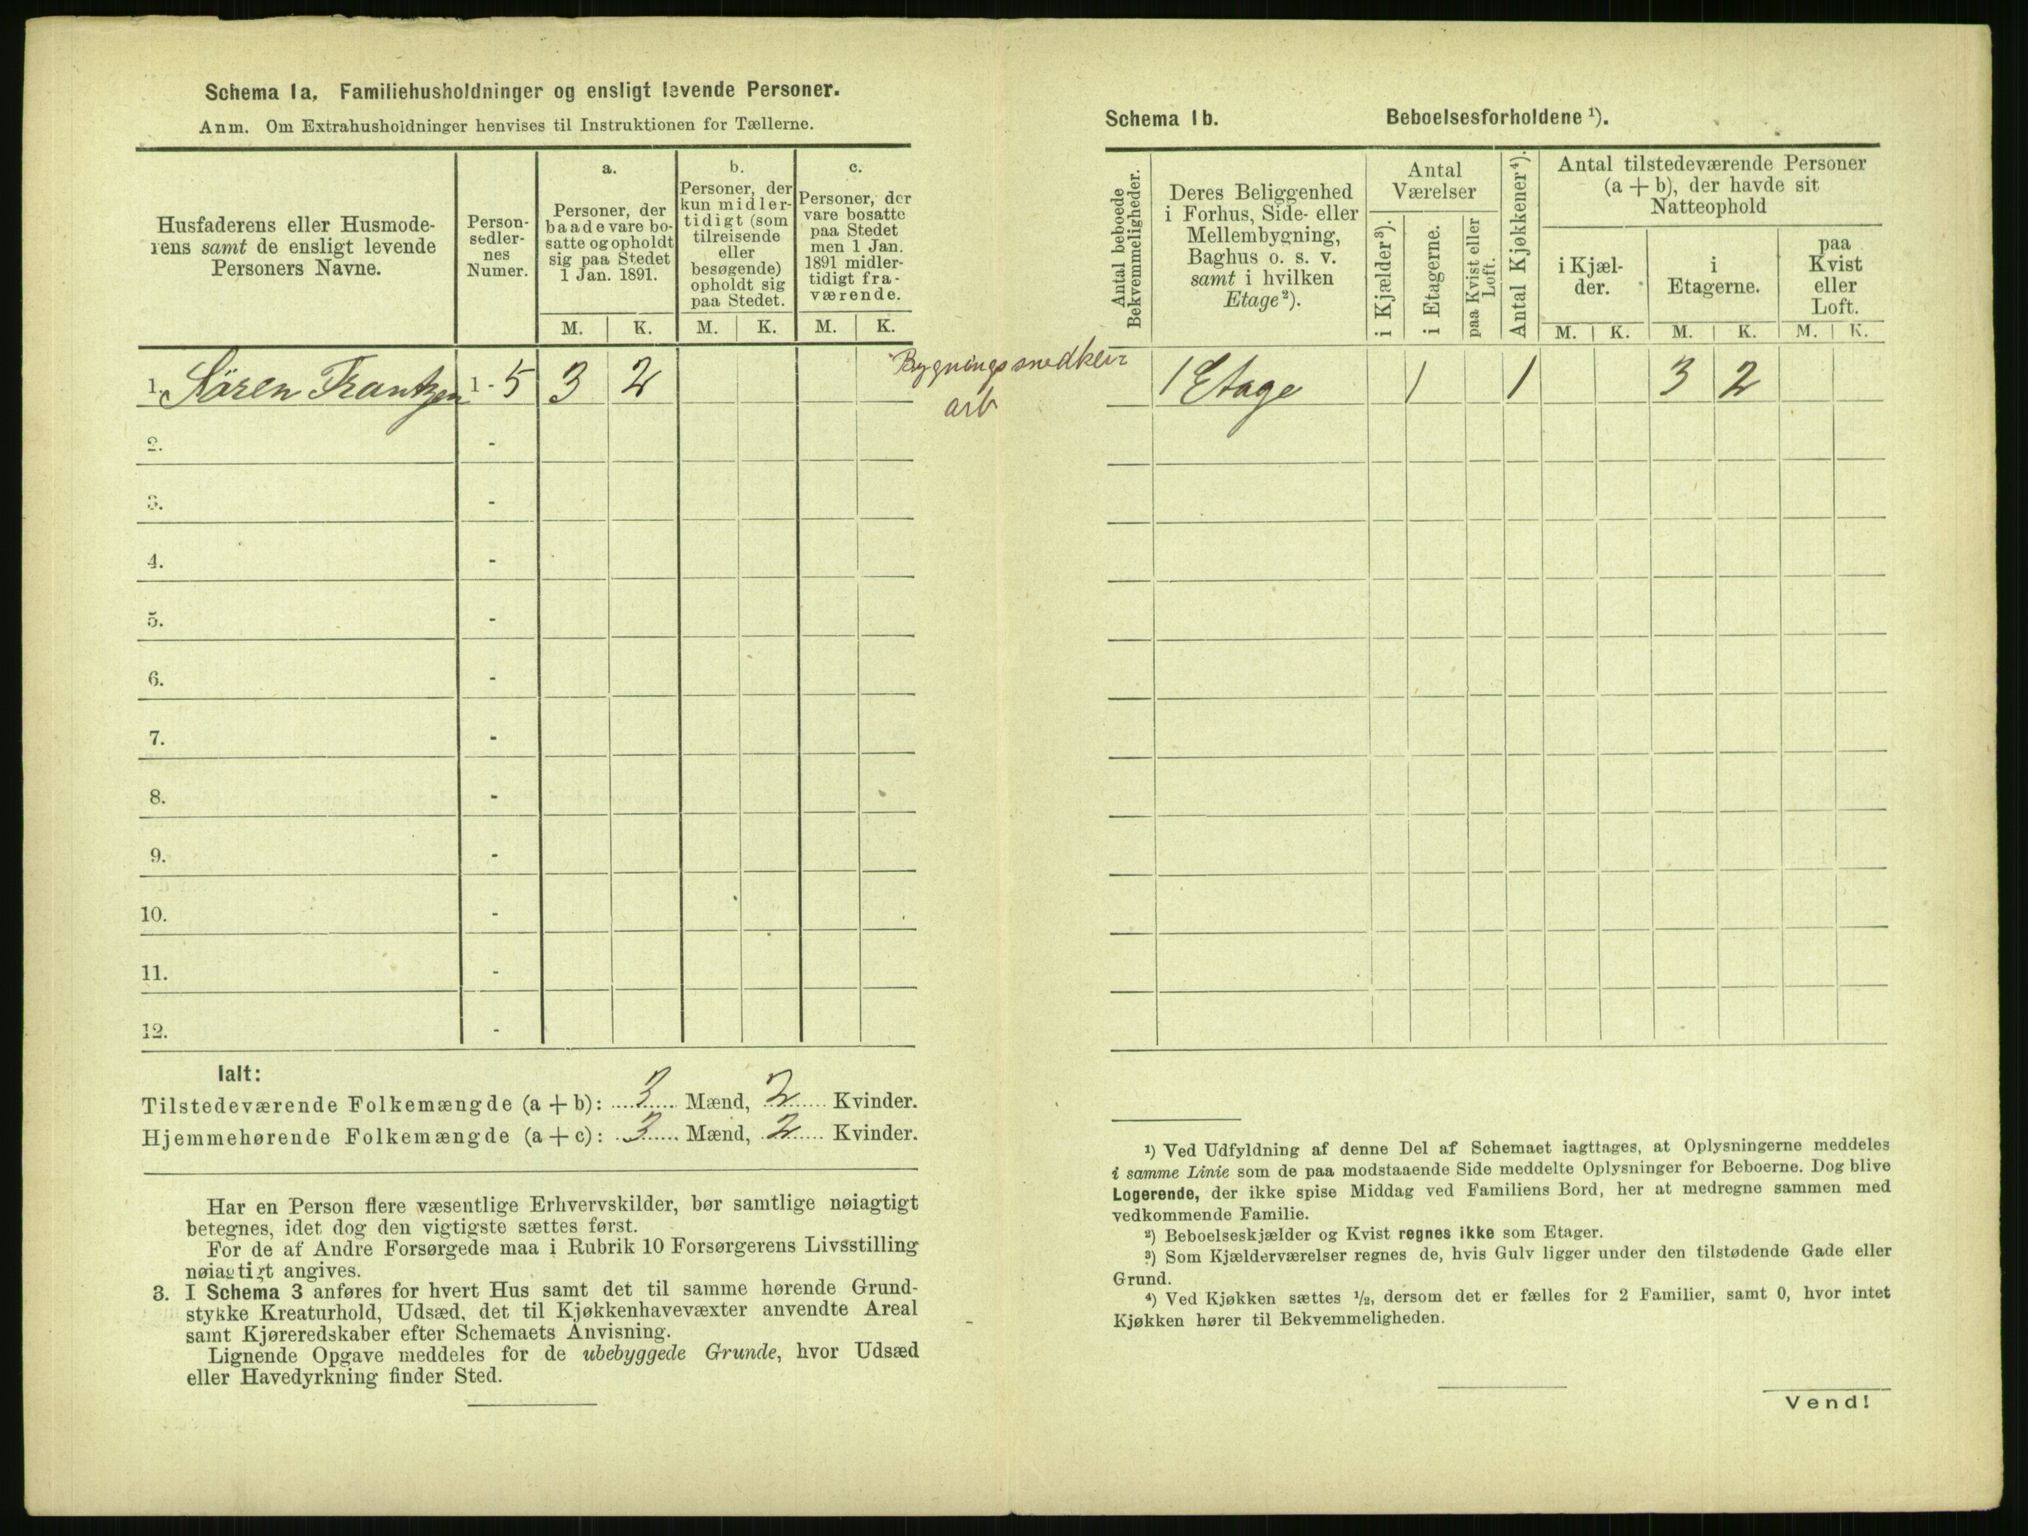 Schema 1a, Familiehusholdninger og ensligt levende Personer.
Anm. Om Extrahusholdninger henvises til Instruktionen for Tællerne.
Husfaderens eller Husmode-
rens samt de ensligt levende
Personers Navne.
Person-
sedler-
nes
Numer.
a.
Personer, der
baade vare bo-
satte og opholdt
sig paa Stedet
1 Jan. 1891.
b.
Personer, der
kun midler-
tidigt (som
tilreisende
eller
besøgende)
opholdt sig
paa Stedet.
c.
Personer, der
vare bosatte
paa Stedet
men 1 Jan.
1891 midler-
tidigt fra-
værende.
M. K. M. K. M. K.
1. Sören Frantzen 1 - 5 3 2
Bygningssnedker
arb
2. -
3. -
4. -
5. -
6. -
7. -
8. -
9. -
10. -
11. -
12. -
Ialt:
Tilstedeværende Folkemængde (a + b): 3 Mænd, 2 Kvinder.
Hjemmehørende Folkemængde (a + c): 3 Mænd, 2 Kvinder.
Har en Person flere væsentlige Erhvervskilder, bør samtlige nøiagtigt
betegnes, idet dog den vigtigste sættes først.
For de af Andre Forsørgede maa i Rubrik 10 Forsørgerens Livsstilling
nøiagtigt angives.
3. I Schema 3 anføres for hvert Hus samt det til samme hørende Grund-
stykke Kreaturhold, Udsæd, det til Kjøkkenhavevæxter anvendte Areal
samt Kjøreredskaber efter Schemaets Anvisning.
Lignende Opgave meddeles for de ubebyggede Grunde, hvor Udsæd
eller Havedyrkning finder Sted.
Schema 1b. Beboelsesforholdene ¹).
Antal beboede
Bekvemmeligheder.
Deres Beliggenhed
i Forhus, Side- eller
Mellembygning,
Baghus o. s. v.
samt i hvilken
Etage²).
Antal
Værelser
i Kjælder³).
i Etagerne.
paa Kvist eller
Loft.
Antal Kjøkkener⁴).
Antal tilstedeværende Personer
(a + b), der havde sit
Natteophold
i Kjæl-
der.
i
Etagerne.
paa
Kvist
eller
Loft.
M. K. M. K. M. K.
1 Etage 1 1 3 2
¹) Ved Udfyldning af denne Del af Schemaet iagttages, at Oplysningerne meddeles
i samme Linie som de paa modstaaende Side meddelte Oplysninger for Beboerne. Dog blive
Logerende, der ikke spise Middag ved Familiens Bord, her at medregne sammen med
vedkommende Familie.
²) Beboelseskjælder og Kvist regnes ikke som Etager.
³) Som Kjælderværelser regnes de, hvis Gulv ligger under den tilstødende Gade eller
Grund.
⁴) Ved Kjøkken sættes ½, dersom det er fælles for 2 Familier, samt 0, hvor intet
Kjøkken hører til Bekvemmeligheden.
Vend!